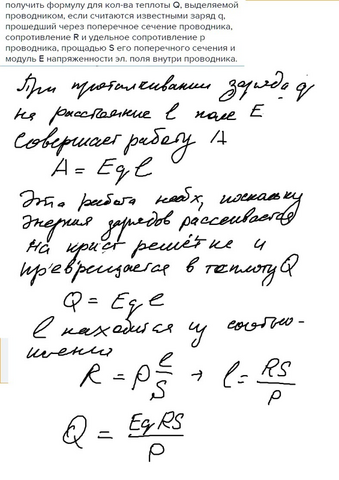 получить формулу для кол-ва теплоты Q, выделяемой
проводником, если считаются известными заряд q,
прошедший через поперечное сечение проводника,
сопротивление R и удельное сопротивление р
проводника, прощадью S его поперечного сечения и
модуль E напряженности эл. поля внутри проводника.
При проталкивании заряда q
на расстояние l поле E
совершает работу A
A = Eql
Эта работа необх, поскольку
энергия зарядов рассеивается
на крист решётке и
превращается в теплоту Q
Q = Eql
l находится из соотно-
шения
R = ρ l/S → l = RS/ρ
Q = EqRS/ρ